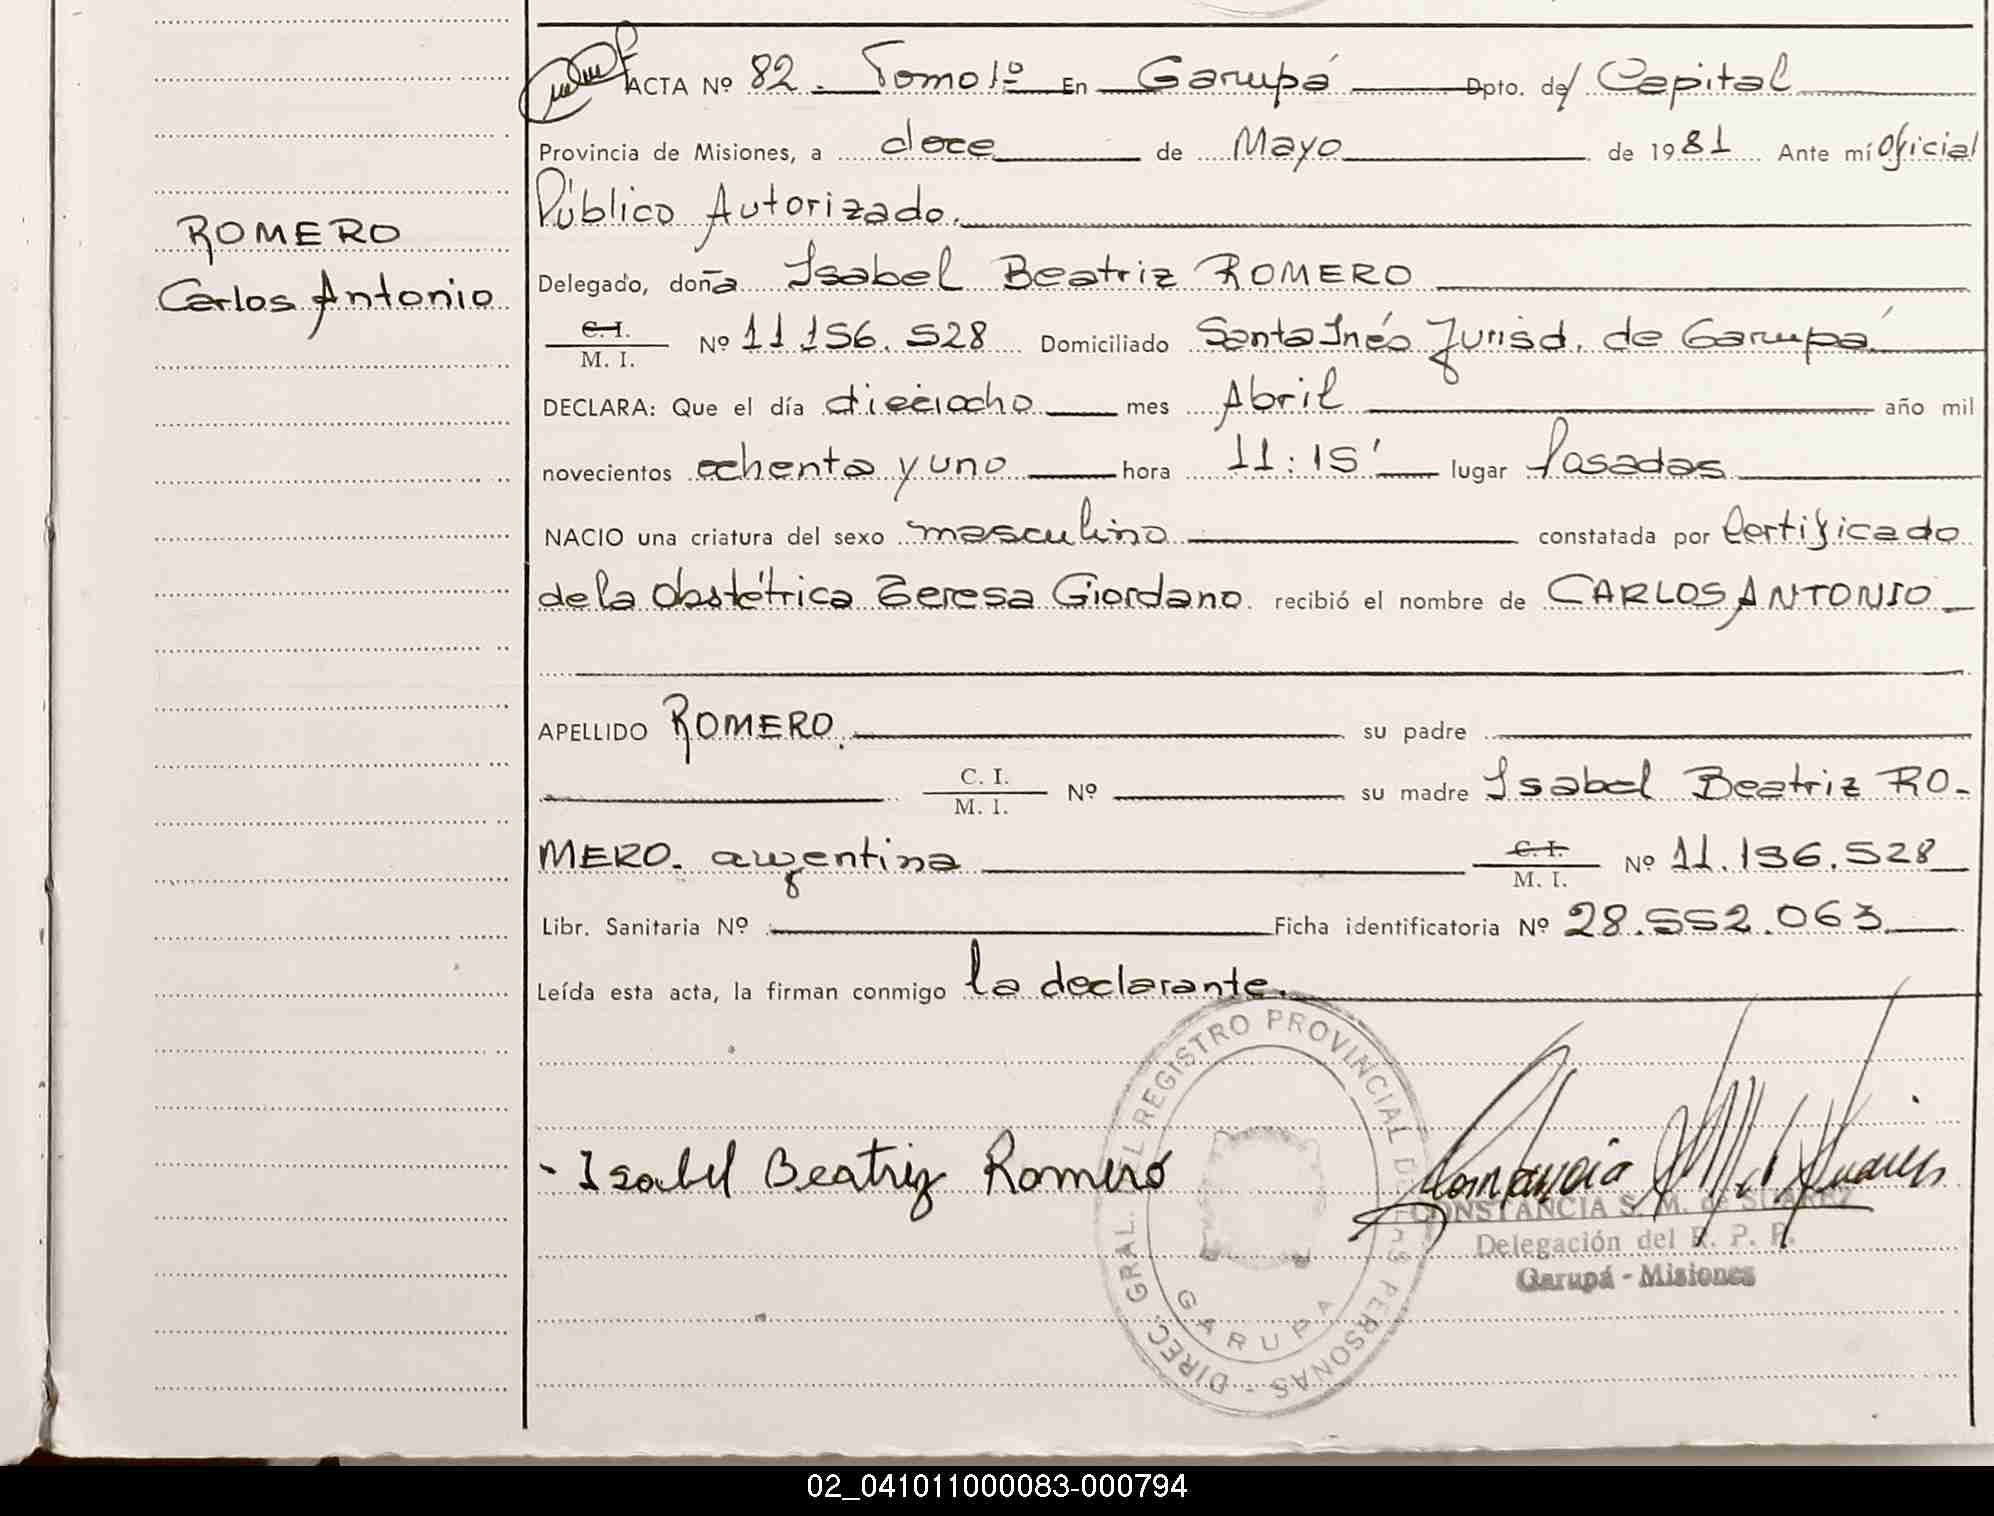 ACTA Nº 82. Tomo 1º En Garupá Dpto. de/ Capital
Provincia de Misiones, a doce de Mayo de 1981 Ante mí Oficial
Público Autorizado.
ROMERO
Delegado, doña Isabel Beatriz ROMERO
Carlos Antonio
C. I.
M. I.
Nº 11.156.528 Domiciliado Santa Inés Jurisd. de Garupá
DECLARA: Que el día dieciocho mes Abril año mil
novecientos ochenta y uno hora 11:15' lugar Posadas
NACIO una criatura del sexo masculino constatada por Certificado
de la Obstétrica Teresa Giordano recibió el nombre de CARLOS ANTONIO
APELLIDO ROMERO. su padre
C. I.
M. I.
Nº su madre Isabel Beatriz RO-
MERO. argentina
C. I.
M. I.
Nº 11.156.528
Libr. Sanitaria Nº Ficha identificatoria Nº 28.552.063
Leída esta acta, la firman conmigo la declarante.
DIREC. GRAL. DEL REGISTRO PROVINCIAL DE LAS PERSONAS -
GARUPA
- Isabel Beatriz Romero
CONSTANCIA S. M. de SUAREZ
Delegación del R. P. P.
Garupá - Misiones
02_041011000083-000794